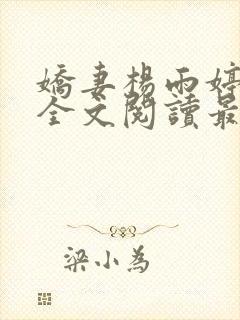 嬌妻楊雨婷
全文閱讀最
梁小為